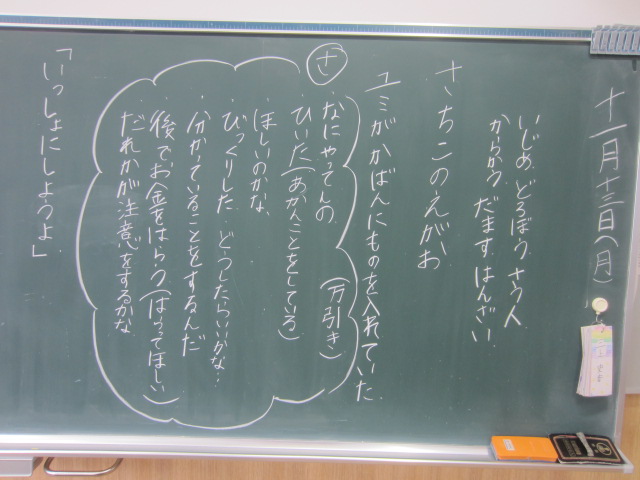 十一月十三日(月)
いじめ、どろぼう、さつ人
からかう、だます、はんざい
さちこのえがお
ユミがかばんにものを入れていた。
さ
・なにやってんの (万引き)
・ひいた(あかんことをしている)
・ほしいのかな、
・びっくりした どうしたらいいかな!
・分かっていることをするんだ
・後で、お金をはらう(はらってほしい)
・だれかが注意をするかな
「いっしょにしようよ」